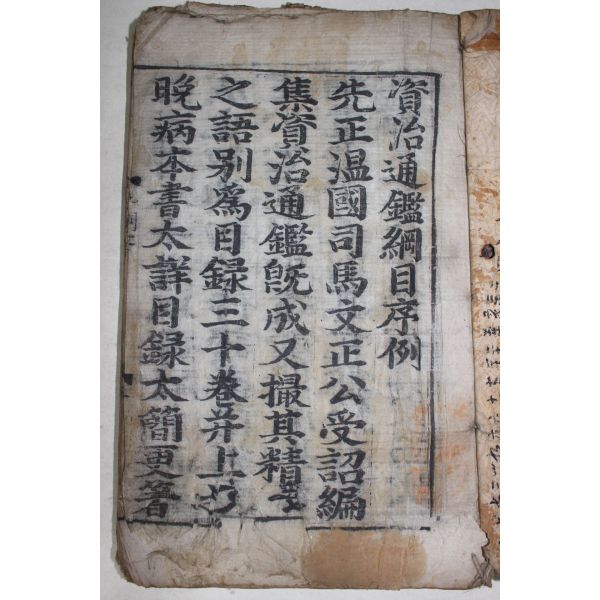 資治通鑑綱目序例
先正温國司馬文正公受詔編
集資治通鑑既成又撮其精要
之語别爲目録三十巻并上之
晩病本書太詳目録太簡更著